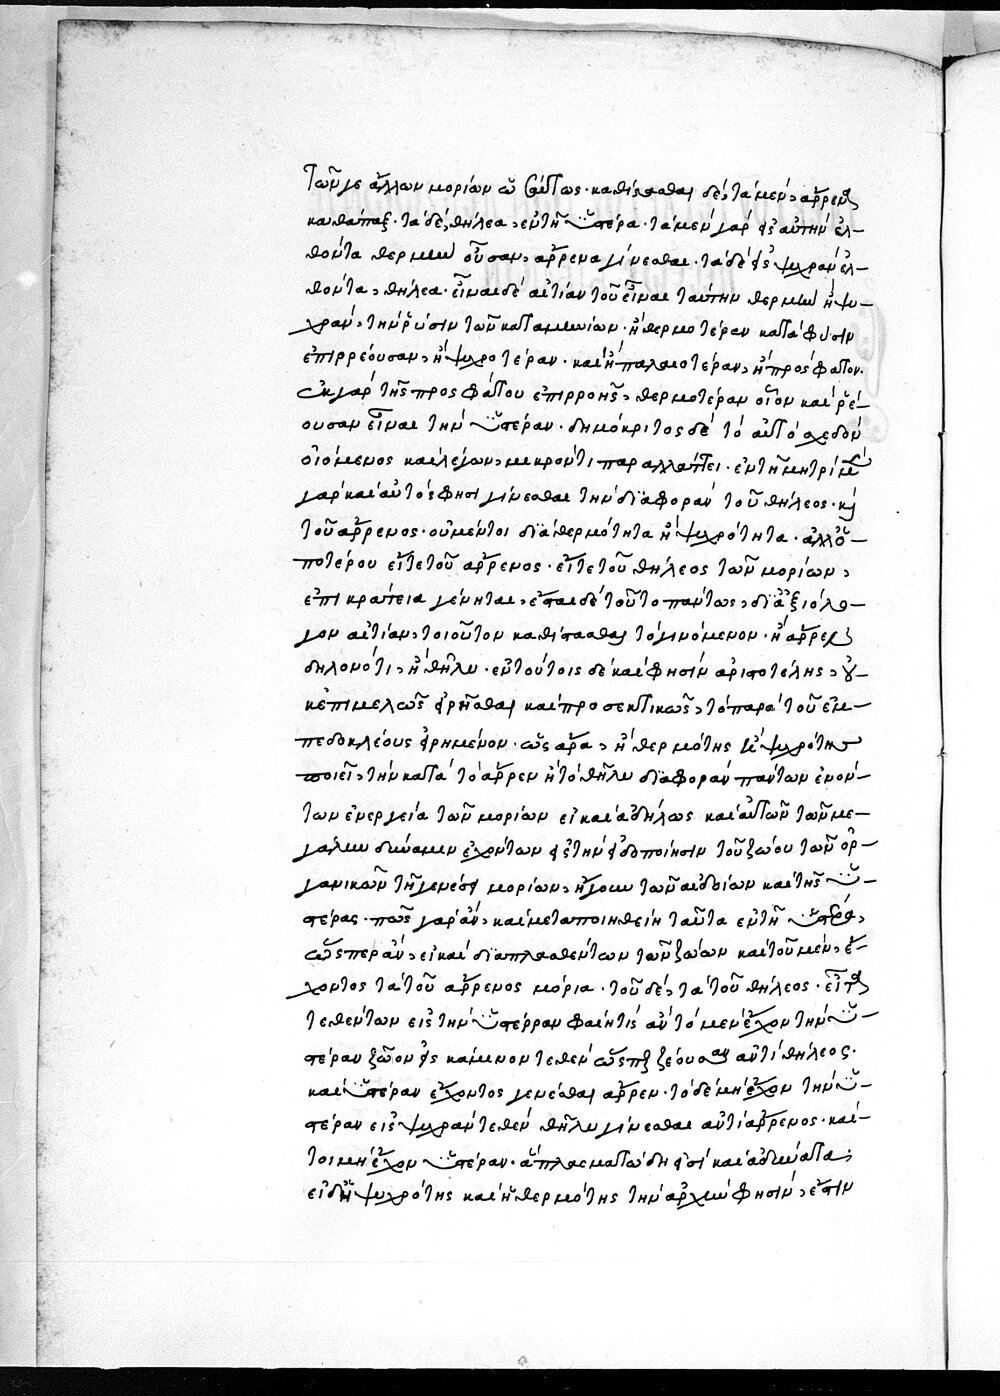 τῶν γε ἄλλων μορίων οὐχ οὕτως· καθίστασθαι δὲ, τὰ μὲν, ἄρρενα
καθάπαξ· τὰ δὲ, θήλεα, ἐν τῆ ὑστέρα· τὰ μὲν γὰρ εἰς αὐτὴν ἐλ-
θόντα θερμὴν οὖσαν, ἄρρενα γίνεσθαι· τὰ δὲ εἰς ψυχρὰν ἐλ-
θόντα, θήλεα· εἶναι δὲ αἰτίαν τοῦ εἶναι ταύτην θερμὴν ἢ ψυ-
χρὰν, τὴν ῥύσιν τῶν καταμηνίων· ἢ θερμοτέραν κατὰ φύσιν
ἐπιρρέουσαν, ἢ ψυχροτέραν· καὶ ἢ παλαιοτέραν, ἢ πρόσφατον·
ἐκ γὰρ τῆς προσφάτου ἐπιρροῆς, θερμοτέραν οἷον καὶ ῥέ-
ουσαν εἶναι τὴν ὑστέραν· δημόκριτος δὲ τὸ αὐτὸ σχεδὸν
οἰόμενος καὶ λέγων, μικρόν τι παραλλάττει· ἐν τῆ μήτρα μὲν
γὰρ καὶ αὐτός φησι γίνεσθαι τὴν διαφορὰν τοῦ θήλεος· καὶ
τοῦ ἄρρενος· οὐ μέντοι διὰ θερμότητα ἢ ψυχρότητα· ἀλλ' ὁ-
ποτέρου εἴτε τοῦ ἄρρενος· εἴτε τοῦ θήλεος τῶν μορίων,
ἐπικράτεια γένηται, ἔσται δὲ τοῦτο πάντως, δι' ἀξιόλο-
γον αἰτίαν, τοιοῦτον καθίστασθαι τὸ γινόμενον· ἢ ἄρρεν
δηλονότι, ἢ θῆλυ· ἐν τούτοις δὲ καί φησιν ἀριστοτέλης, οὐ-
κ ἐπιμελῶς εἰρῆσθαι καὶ προσεκτικῶς, τὸ παρὰ τοῦ ἐμ-
πεδοκλέους εἰρημένον· ὡς ἄρα, ἡ θερμότης ἢ ψυχρότης
ποιεῖ, τὴν κατὰ τὸ ἄρρεν ἢ τὸ θῆλυ διαφορὰν πάντων ἐνόν-
των ἐνεργεία τῶν μορίων εἰ καὶ ἀδήλως καὶ αὐτῶν τῶν με-
γάλην δύναμιν ἐχόντων εἰς τὴν εἰδοποίησιν τοῦ ζώου τῶν ὀρ-
γανικῶν τῆ γενέσει μορίων, ἤγουν τῶν αἰδοίων καὶ τῆς ὑ-
στέρας· πῶς γὰρ ἂν, καὶ μεταποιηθείη ταῦτα ἐν τῆ ὑστέρα,
ὥσπερ ἂν, εἰ καὶ διαπλασθέντων τῶν ζώων καὶ τοῦ μὲν, ἔ-
χοντος τὰ τοῦ ἄρρενος μόρια· τοῦ δὲ, τὰ τοῦ θήλεος· εἶτα
τεθέντων εἰς τὴν ὑστέρραν φαίη τὶς ἂν τὸ μὲν ἔχον τὴν ὑ-
στέραν ζῶον εἰς κάμινον τεθὲν ὥσπερ ζέουσαν ἀντὶ θήλεος·
καὶ ὑστέραν ἔχοντος γενέσθαι ἄρρεν· τὸ δὲ μὴ ἔχον τὴν ὑ-
στέραν εἰς ψυχρὰν τεθὲν θῆλυ γίνεσθαι ἀντὶ ἄρρενος· καί-
τοι μὴ ἔχον ὑστέραν· ἅπλασματώδη εἰσὶ καὶ ἀδύνατα,
εἰ δὴ ψυχρότης καὶ ἡ θερμότης τὴν ἀρχὴν φησὶν, ἔστιν